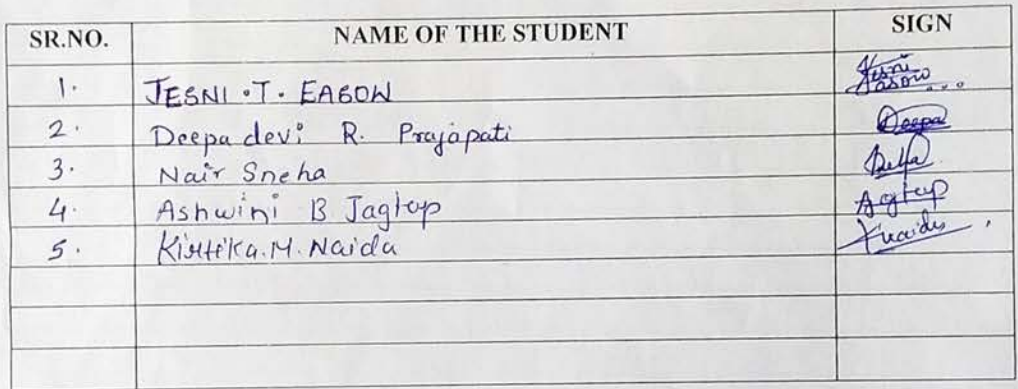 SR.NO. NAME OF THE STUDENT SIGN
1. JESNI .T. EASOW Jesni Easow...
2. Deepa devi R. Prajapati Deepa
3. Nair Sneha
4. Ashwini B Jagtap Agtap
5. Kirtika.M. Naidu KNaidu